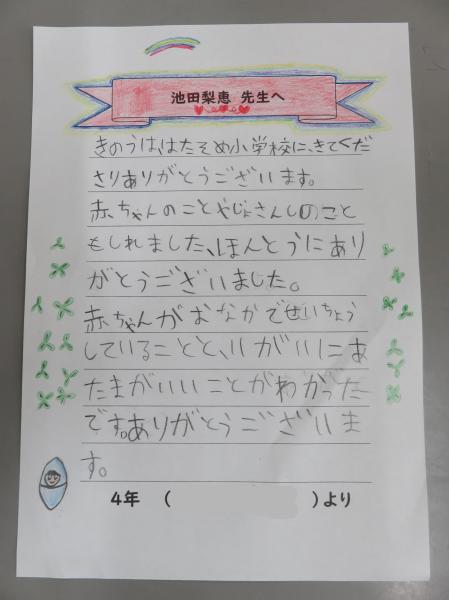 池田梨恵 先生へ
きのうは、はたそめ小学校に、きてくだ
さりありがとうございます。
赤ちゃんのことやじょさんしのこと
もしれました、ほんとうにあり
がとうございました。
赤ちゃんがおなかでせいちょう
していることと、いがいにあ
たまがいいことがわかった
です。ありがとうございま
す。
4年 ( )より